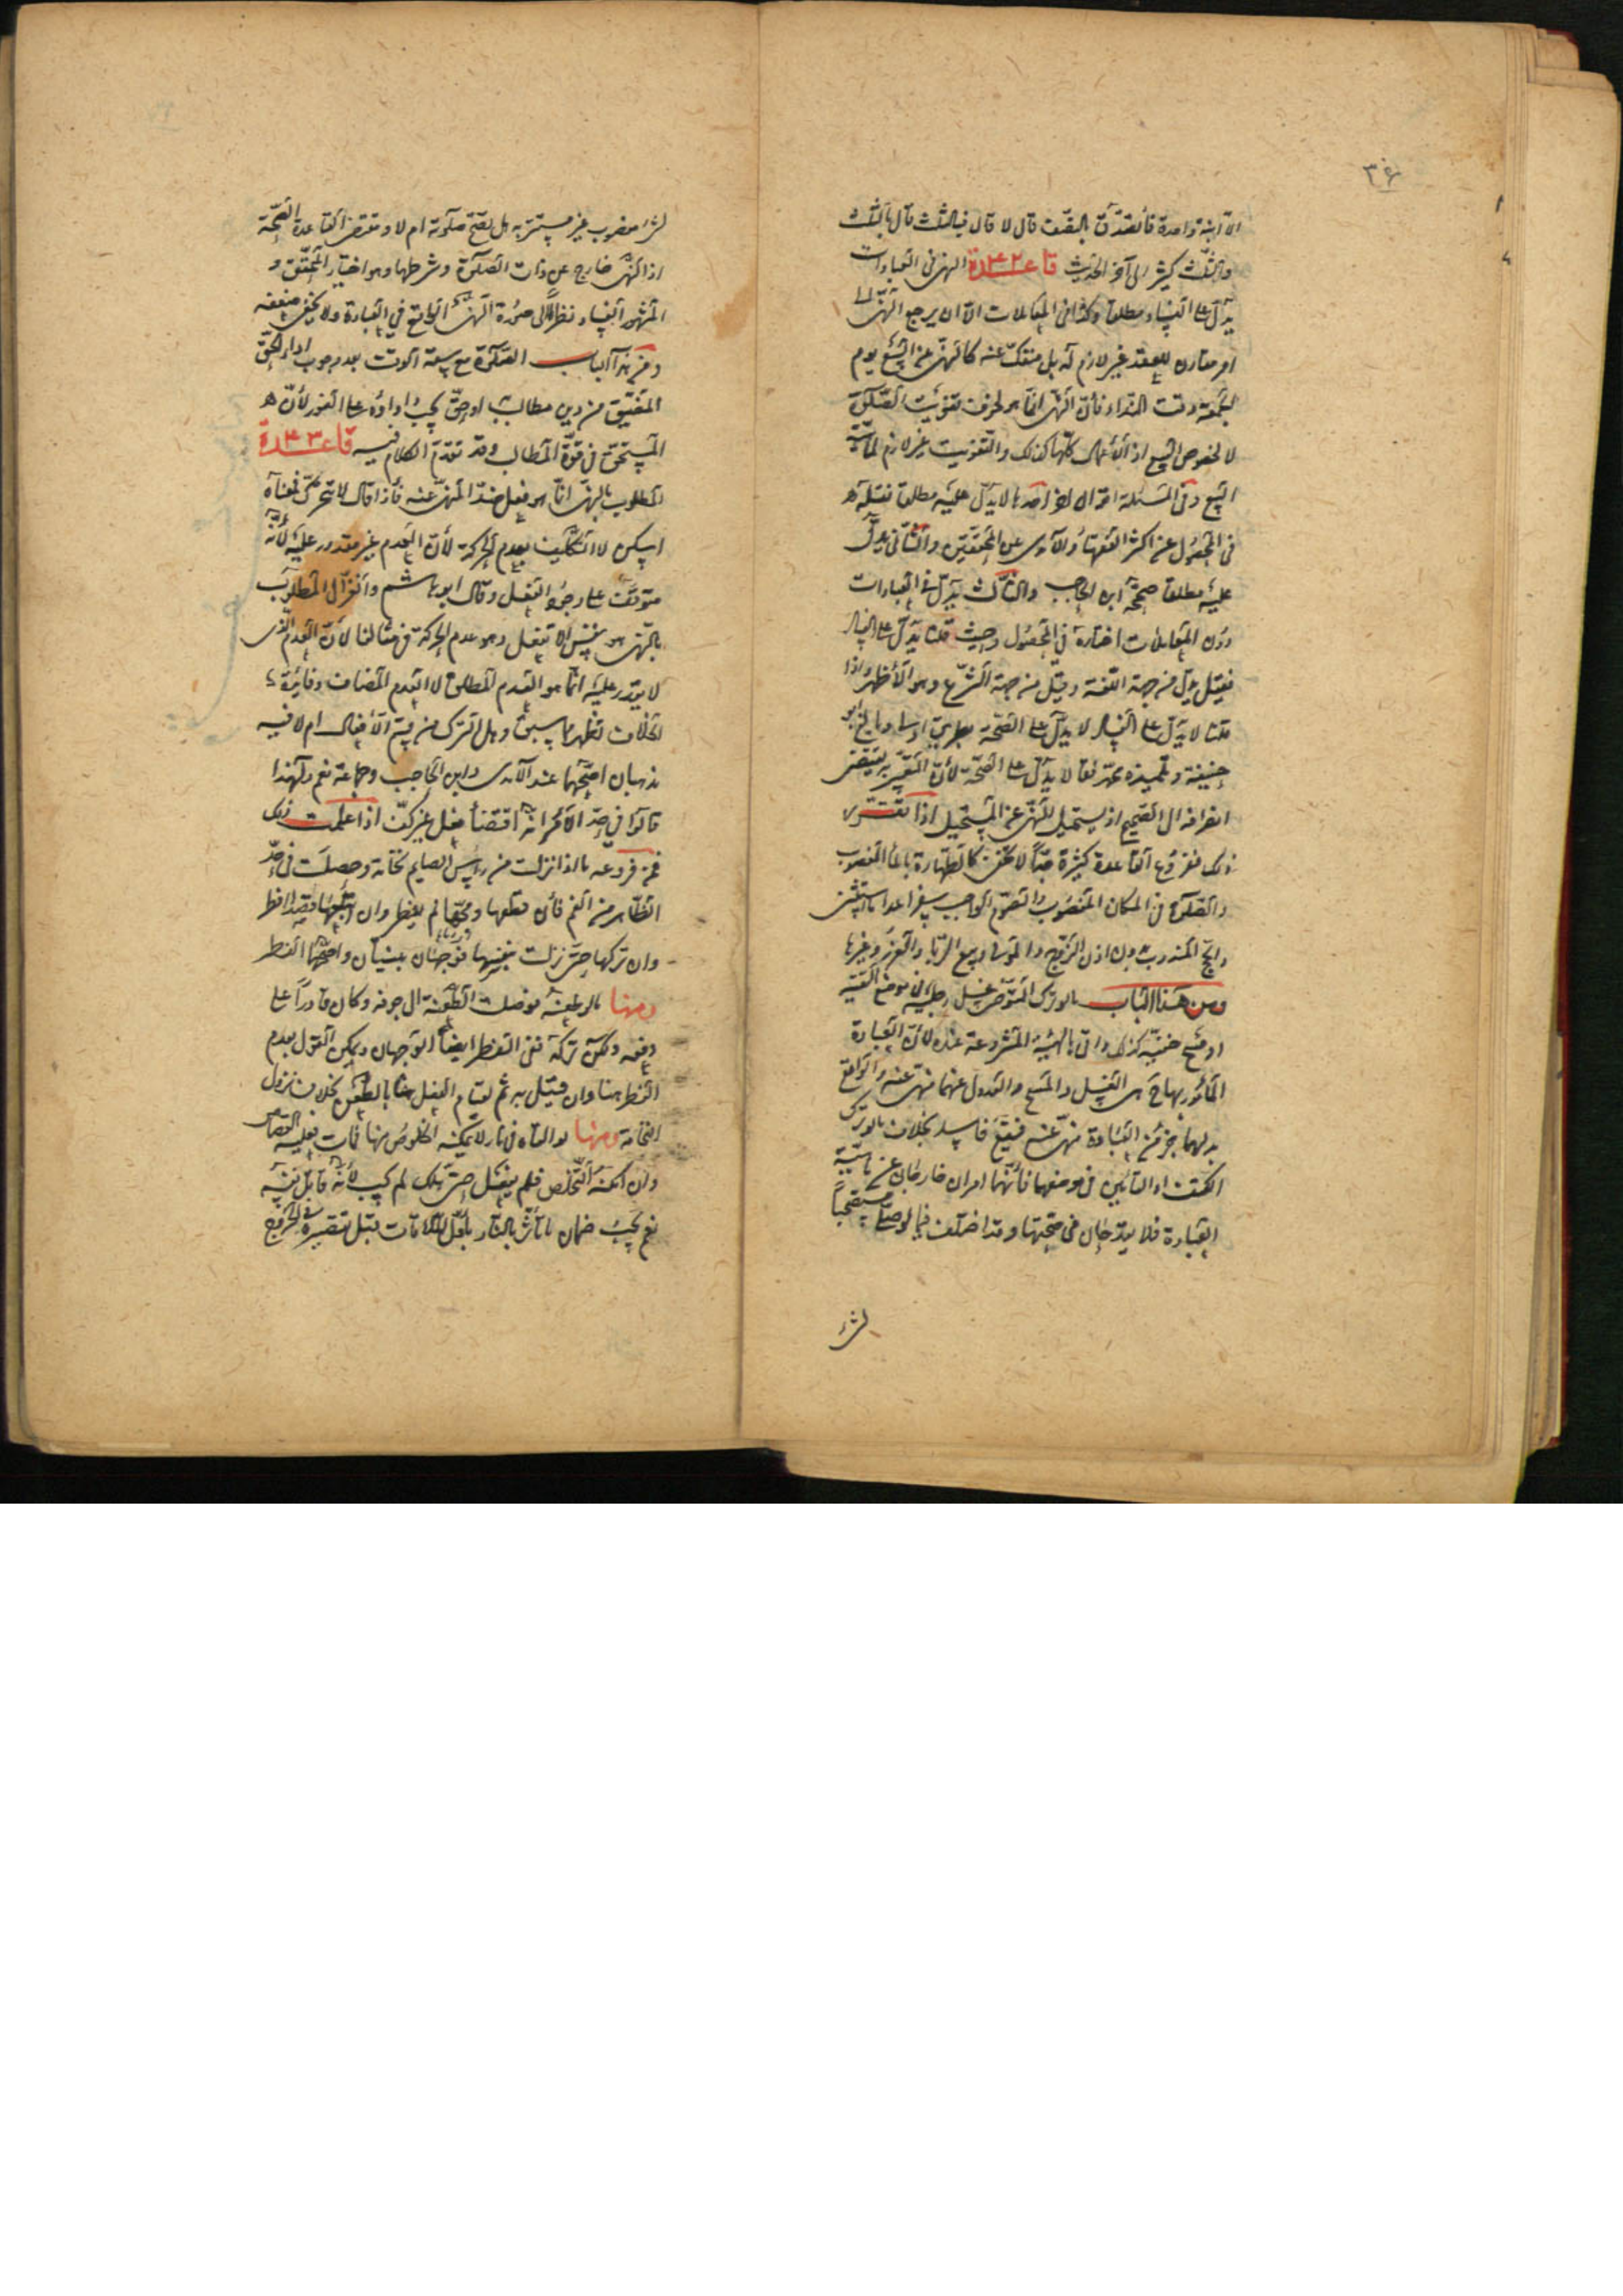 ٣٤
الا ابنة واحدة فأتصدق بالنصف قال لا قال فبالثلث قال بالثلث
والثلث كثير الى آخر الحديث قاعدة ٤٢ النهي في العبادات
يدل على الفساد مطلقا وكذا في المعاملات الا ان يرجع النهي الى
امر مقارن للعقد غير لازم له بل منفك عنه كالنهي عن البيع يوم
الجمعة وقت النداء فأن النهي انما هو لخوف تفويت الصلوة
لا لخصوص البيع اذ الأعمال كلها كذلك والتفويت غير لازم لماهية
البيع وفي المسئلة اقوال اخر احدها لا يدل عليه مطلقا نقله
في المحصول عن اكثر الفقهاء والآمدي عن المحققين والثاني يدل
عليه مطلقا صححه ابن الحاجب والثالث يدل في العبادات
دون المعاملات اختاره في المحصول وحيث قلنا يدل على الفساد
فقيل يدل من جهة اللغة وقيل من جهة الشرع وهو الأظهر واذا
قلنا لا يدل على الفساد لا يدل على الصحة بطريق اولى وبالغ ابو
حنيفة وتلميذه محمد فقالا يدل على الصحة لأن التعبير به يقتضي
انصرافه الى الصحيح اذ يستحيل النهي عن المستحيل اذا تقرر
ذلك ففروع القاعدة كثيرة جدا لا تخفى كالطهارة بالماء المغصوب
والصلوة في المكان المغصوب والصوم الواجب سفرا عدا ما استثنى
والحج المندوب بدون اذن الزوج والمولى وبيع الربا والغرر وغيرها
ومن هذا الباب ما لو ترك المتوضئ غسل رجليه في موضع التقية
او مسح خفيه كذلك واتى بالهيئة المشروعة عنده لأن العبادة
المأمور بها ح هي الغسل والمسح والعدول عنهما منهي عنه والواقع
بدلهما جزء من العبادة منهي عنه فيقع فاسدا بخلاف ما لو ترك
الكتف او التأمين في موضعهما فأنهما امران خارجان عن ماهية
العبادة فلا يقدحان في صحتها وقد اختلف فيما لو صلى مستصحبا
لشئ
لشئ مغصوب غير مستتر به هل تصح صلوته ام لا ومقتضى القاعدة الصحة
اذ النهي خارج عن ذات الصلوة وشرطها وهو اختيار المحقق و
المشهور الفساد نظرا الى صورة النهي الواقع في العبادة ولا يخفى ضعفه
ومن هذا الباب الصلوة مع سعة الوقت بعد وجوب اداء الحق
المضيق من دين مطالب به او حق يجب اداؤه على الفور لأن
المستحق في قوة المطالب وقد تقدم الكلام فيه قاعدة ٤٣
المطلوب بالنهي انما هو فعل ضد المنهي عنه فأذا قال لا تتحرك فمعناه
اسكن لا التكليف بعدم الحركة لأن العدم غير مقدور عليه لأنه
متوقف على وجود الفعل وقال ابو هاشم والغزالي المطلوب
بالنهي هو نفس لا تفعل وهو عدم الحركة في مثالنا لأن العدم الذي
لا يقدر عليه انما هو العدم المطلق لا العدم المضاف وفائدة
الخلاف تظهر مما سبق وهل الترك من قسم الأفعال ام لا فيه
مذهبان اصحهما عند الآمدي وابن الحاجب وجماعة نعم ولهذا
قالوا في حد الأمر انه اقتضاء فعل غير كف اذا علمت ذلك
فمن فروعه ما اذا نزلت من رأس الصايم نخامة وحصلت في حد
الظاهر من الفم فأن قطعها ومجها لم يفطر وان ابتلعها قصدا افطر
وان تركها حتى نزلت بنفسها فوجهان مبنيان واصحهما الفطر
ومنها ما لو طعنه فوصلت الطعنة الى جوفه وكان قادرا على
دفعه ولكن تركه ففي الفطر ايضا الوجهان ويمكن القول بعدم
الفطر هنا وان قيل به ثم لقيام الفعل هنا بالطعن بخلاف نزول
النخامة ومنها لو القاه في نار لا يمكنه الخلوص منها فمات فعليه القصاص
وان امكنه التخلص فلم يفعل حتى هلك لم يجب لأنه قاتل نفسه
نعم يجب ضمان ما تأثر بالنار بأول الملاقات قبل تقصيره في الخروج